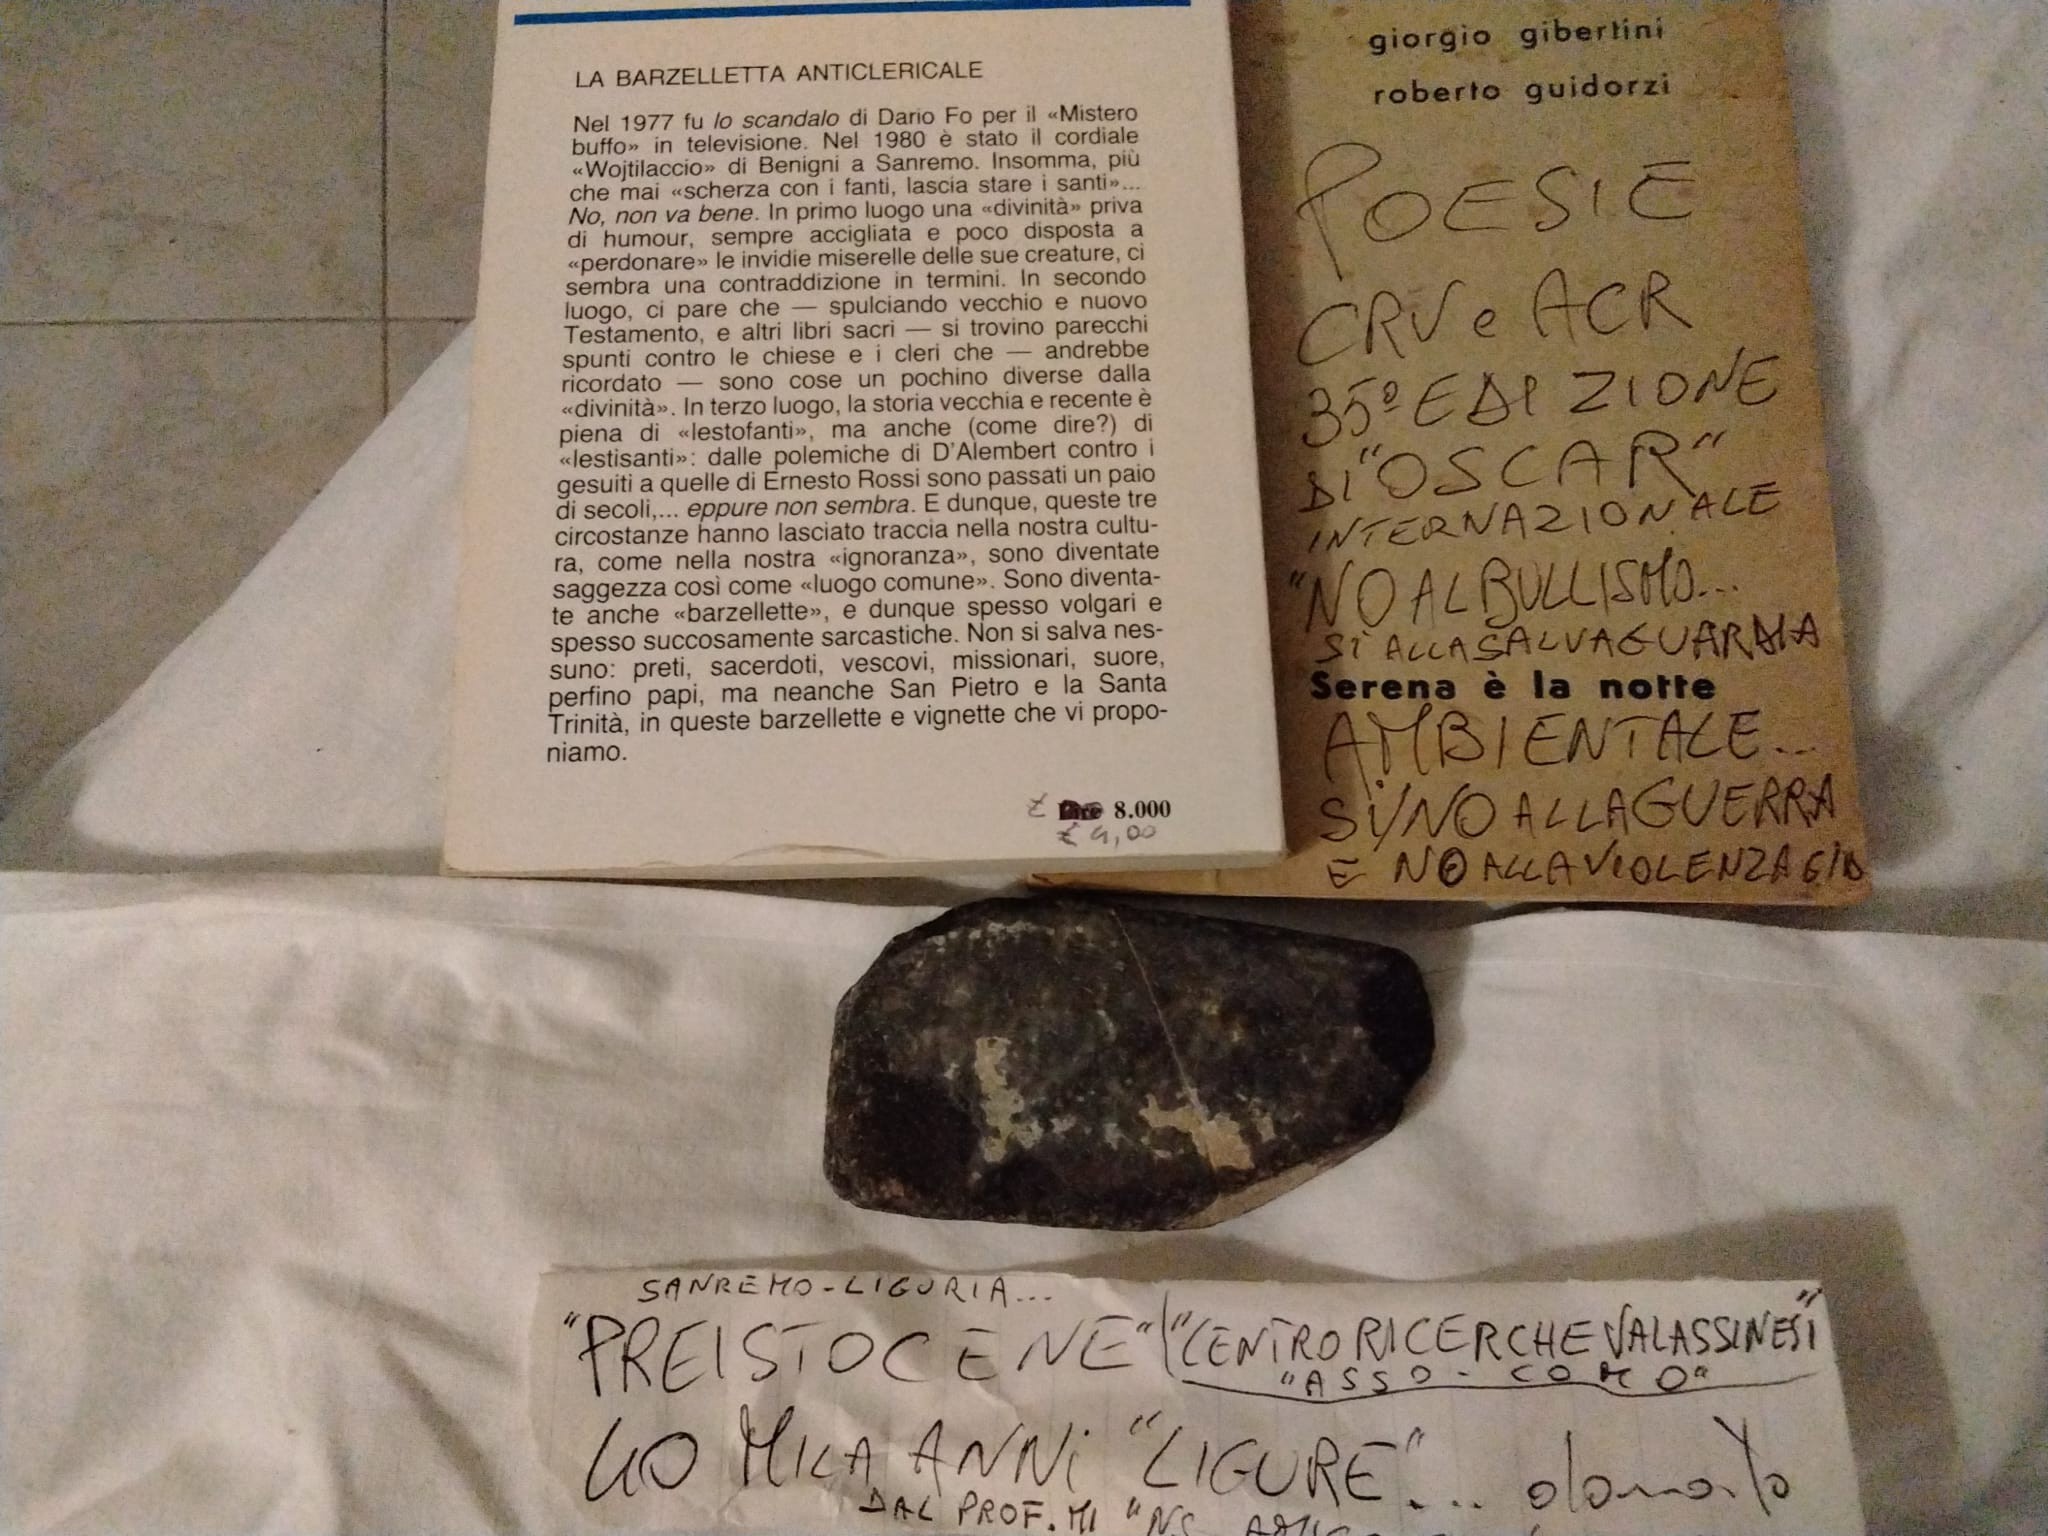 LA BARZELLETTA ANTICLERICALE
Nel 1977 fu lo scandalo di Dario Fo per il «Mistero
buffo» in televisione. Nel 1980 è stato il cordiale
«Wojtilaccio» di Benigni a Sanremo. Insomma, più
che mai «scherza con i fanti, lascia stare i santi»...
No, non va bene. In primo luogo una «divinità» priva
di humour, sempre accigliata e poco disposta a
«perdonare» le invidie miserelle delle sue creature, ci
sembra una contraddizione in termini. In secondo
luogo, ci pare che — spulciando vecchio e nuovo
Testamento, e altri libri sacri — si trovino parecchi
spunti contro le chiese e i cleri che — andrebbe
ricordato — sono cose un pochino diverse dalla
«divinità». In terzo luogo, la storia vecchia e recente è
piena di «lestofanti», ma anche (come dire?) di
«lestisanti»: dalle polemiche di D'Alembert contro i
gesuiti a quelle di Ernesto Rossi sono passati un paio
di secoli,... eppure non sembra. E dunque, queste tre
circostanze hanno lasciato traccia nella nostra cultu-
ra, come nella nostra «ignoranza», sono diventate
saggezza così come «luogo comune». Sono diventa-
te anche «barzellette», e dunque spesso volgari e
spesso succosamente sarcastiche. Non si salva nes-
suno: preti, sacerdoti, vescovi, missionari, suore,
perfino papi, ma neanche San Pietro e la Santa
Trinità, in queste barzellette e vignette che vi propo-
niamo.
8.000
4,00
giorgio gibertini
roberto guidorzi
POESIE
CRV e ACR
35º EDIZIONE
DI "OSCAR"
INTERNAZIONALE
"NO AL BULLISMO...
SI ALLA SALVAGUARDIA
Serena è la notte
AMBIENTALE...
SI/NO ALLA GUERRA
E NO ALLA VIOLENZA
SANREMO-LIGURIA...
"PREISTOCENE" "CENTRO RICERCHE VALASSINESI"
"ASSO-COMO"
40 MILA ANNI "LIGURE"... donato
DAL PROF. MI "NS.